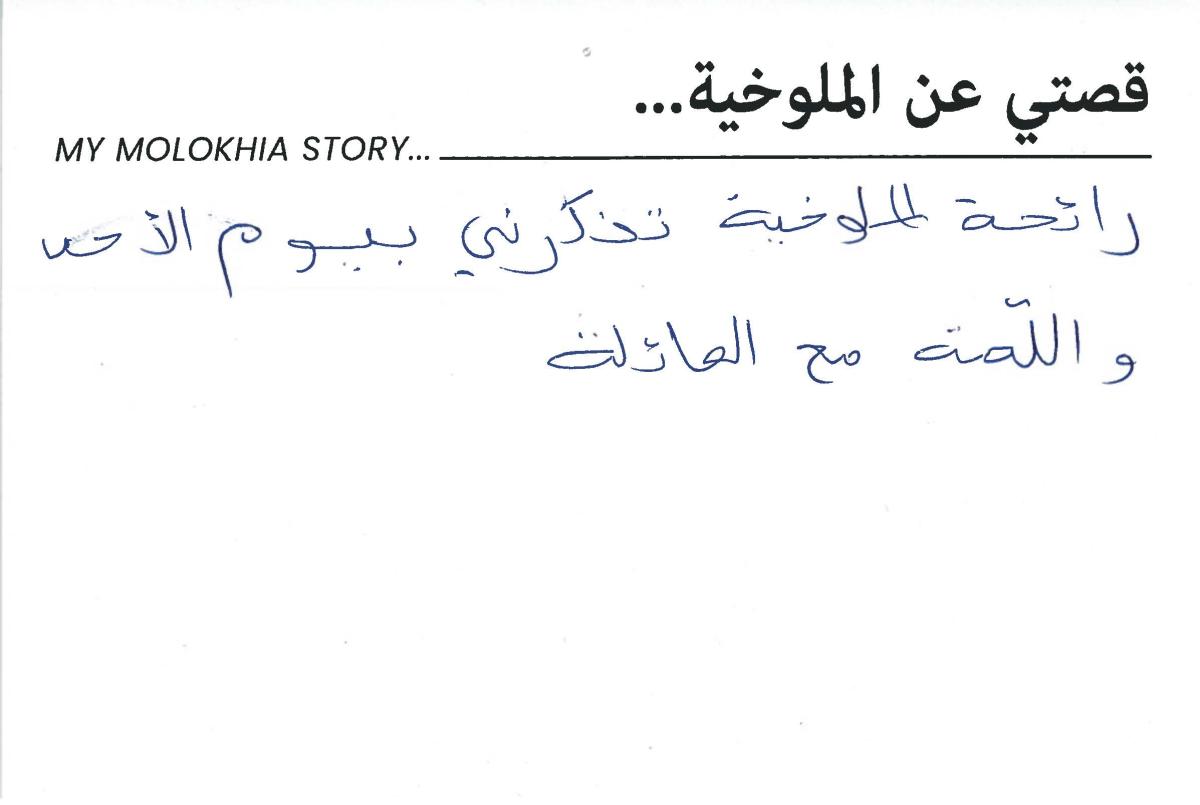 قصتي عن الملوخية...
MY MOLOKHIA STORY...
رائحة الملوخية تذكرني بيوم الأحد
و اللّمة مع العائلة